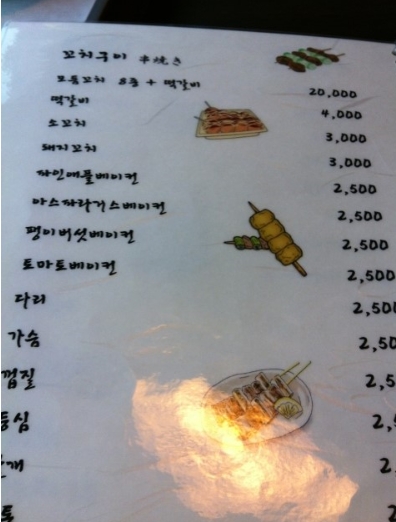 꼬치구이 串焼き
모듬꼬치 8종 + 떡갈비 20,000
떡갈비 4,000
소꼬치 3,000
돼지꼬치 3,000
파인애플베이컨 2,500
아스파라거스베이컨 2,500
팽이버섯베이컨 2,500
토마토베이컨 2,500
다리 2,500
가슴 2,50
껍질 2,5
등심 2,
개 2.